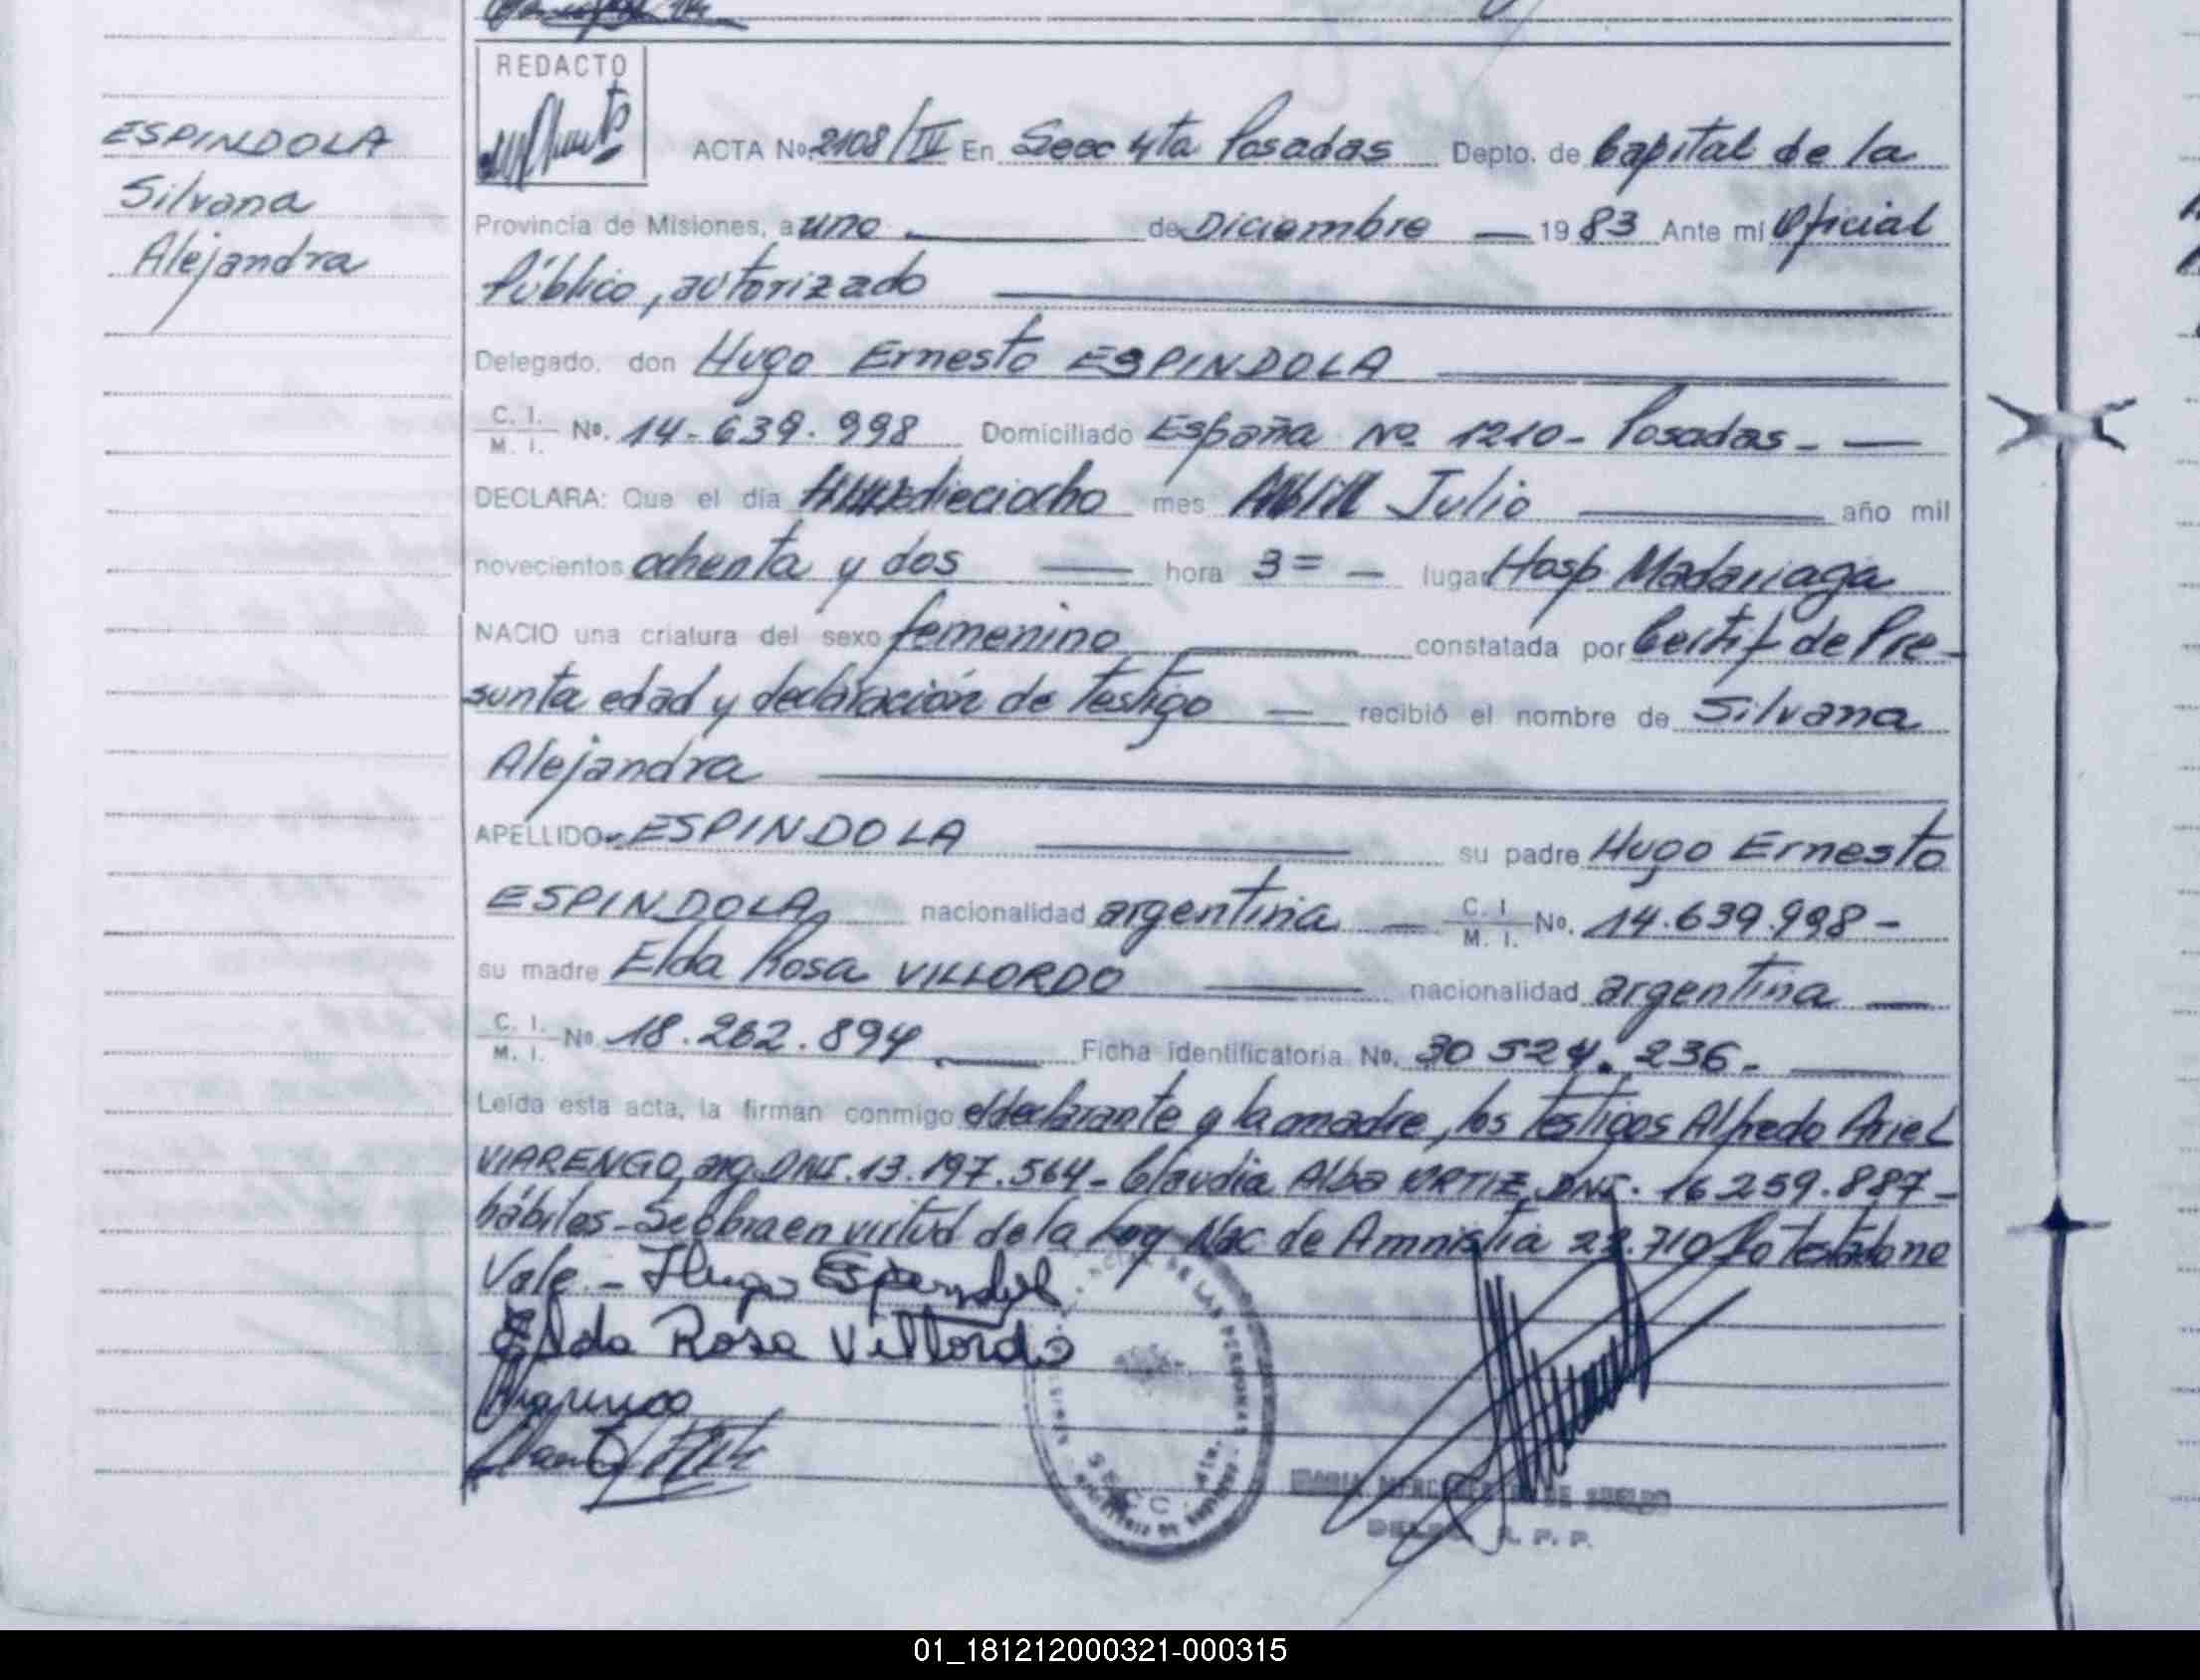 REDACTO
ESPINDOLA
Silvana
Alejandra
ACTA No. 2108/IV En Secc 4ta Posadas Depto. de Capital de la
Provincia de Misiones, a uno de Diciembre 1983 Ante mi Oficial
Público, autorizado
Delegado. don Hugo Ernesto ESPINDOLA
C. I. M. I. No. 14.639.998 Domiciliado España No 1210 - Posadas -
DECLARA: Que el día dieciocho mes Abril Julio año mil
novecientos ochenta y dos hora 3= lugar Hosp Madariaga
NACIO una criatura del sexo femenino constatada por Certif de Pre-
sunta edad y declaración de testigo recibió el nombre de Silvana
Alejandra
APELLIDO ESPINDOLA su padre Hugo Ernesto
ESPINDOLA, nacionalidad argentina C. I. M. I. No. 14.639.998 -
su madre Elda Rosa VILLORDO nacionalidad argentina
C. I. M. I. No. 18.262.894 Ficha identificatoria No. 30 524. 236 -
Leída esta acta, la firman conmigo el declarante y la madre, los testigos Alfredo Ariel
VIARENGO, arg. DNI. 13.197.564 - Claudia Alba ORTIZ, DNI. 16 259.887 -
hábiles - Se obra en virtud de la Ley Nac de Amnistia 22.710 Lo testado no
Vale. - Hugo Espindola
Elda Rosa Villordo
DE LAS PERSONAS
SECC. 4ta.
DE SUELDO
R. P. P.
01_181212000321-000315